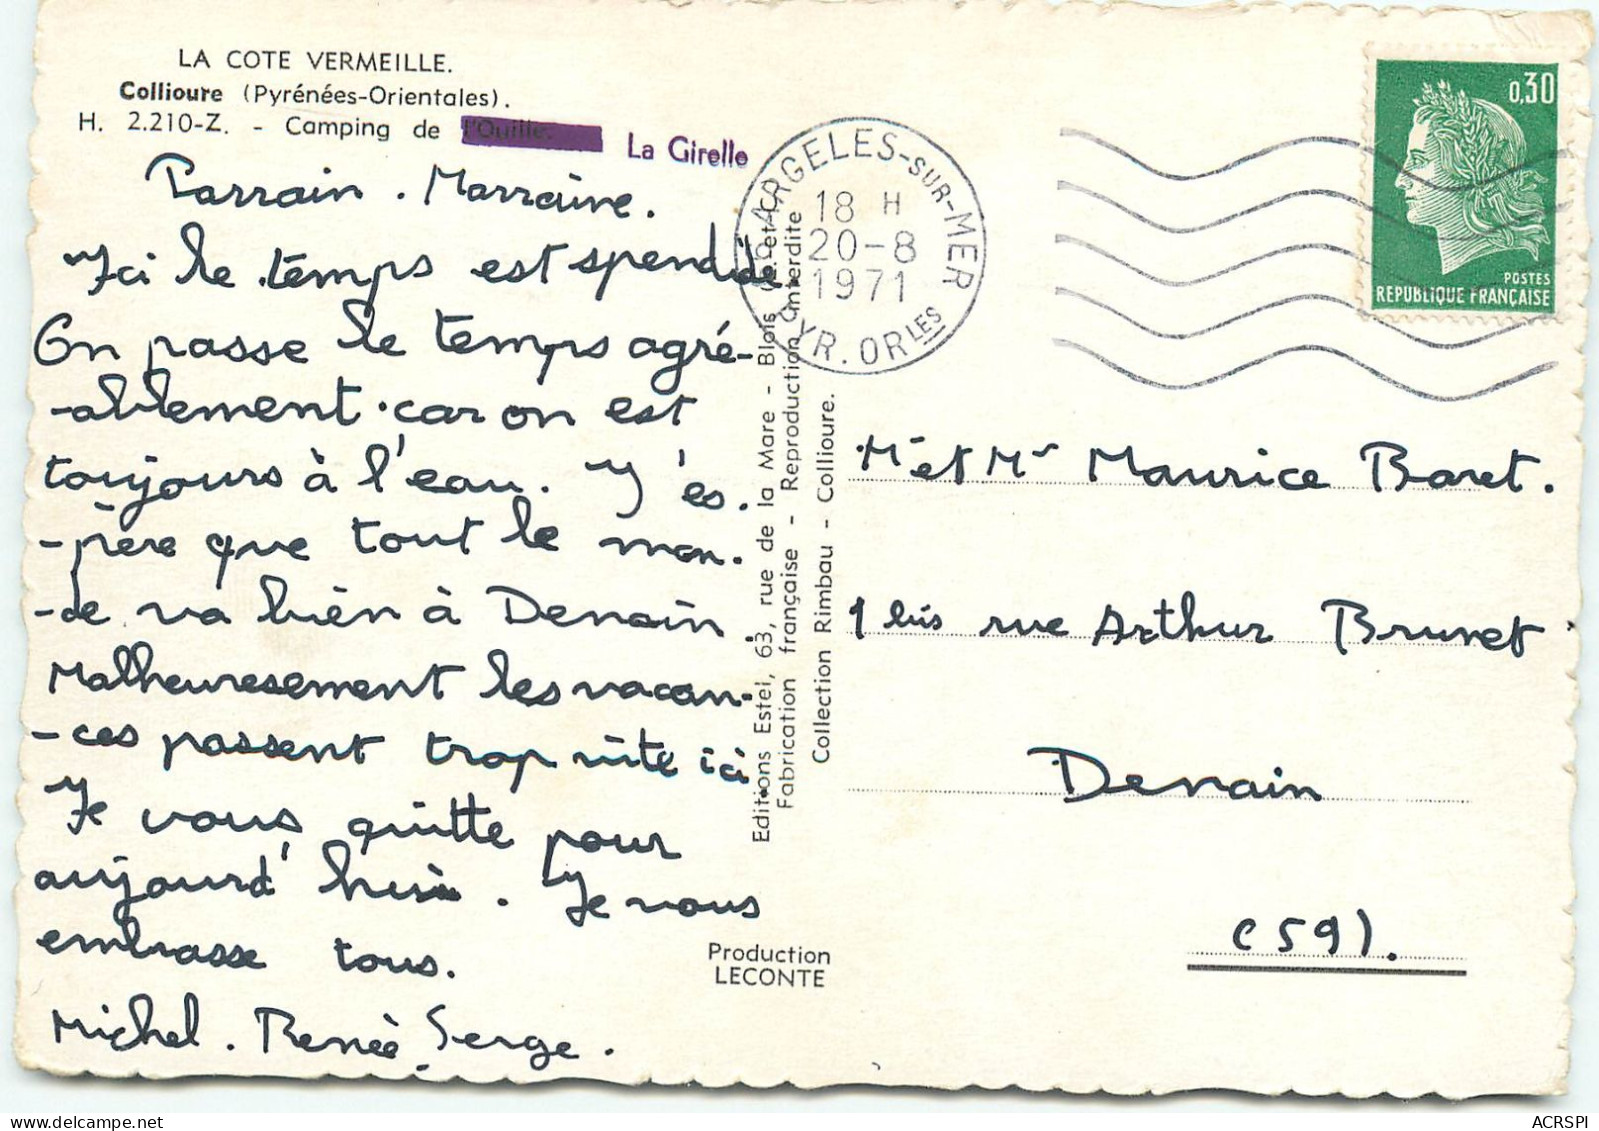 LA COTE VERMEILLE.
Collioure (Pyrénées-Orientales).
H. 2.210-Z. - Camping de l'Ouille. La Girelle
Parrain. Marraine.
Ici le temps est spendide
On passe le temps agré-
-ablement. car on est
toujours à l'eau. J'es.
-père que tout le mon.
-de va bien à Denain
Malheuresement les vacan-
-ces passent trop vite ici
Je vous quitte pour
aujourd'hui. Je vous
embrasse tous.
Michel. Renée Serge.
Editions Estel, 63, rue de la Mare - Blois
Fabrication française - Reproduction interdite
Collection Rimbau - Collioure.
Production
LECONTE
ARGELES-SUR-MER
18 H
20-8
1971
PYR. ORLES
0,30
POSTES
REPUBLIQUE FRANÇAISE
Mr et Mr Maurice Baret.
1 bis rue Arthur Brunet
Denain
(59).
ACRSPI